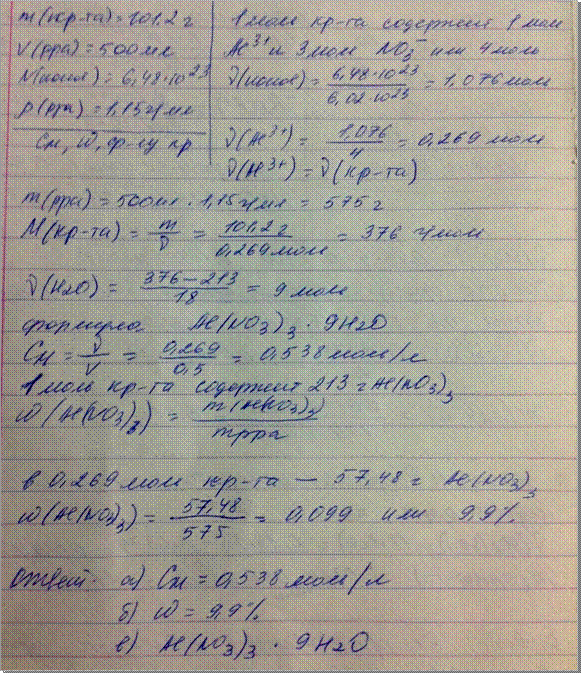 m(кр-та) = 101,2 г
V(рра) = 500 мл
N(ионов) = 6,48·10²³
ρ(рра) = 1,15 г/мл
Cм, ω, ф-лу кр
1 моль кр-та содержит 1 моль
Al³⁺ и 3 моль NO₃⁻ или 4 моль
ν(ионов) = 6,48·10²³ / 6,02·10²³ = 1,076 моль
ν(Al³⁺) = 1,076 / 4 = 0,269 моль
ν(Al³⁺) = ν(кр-та)
m(рра) = 500 мл · 1,15 г/мл = 575 г
M(кр-та) = m / ν = 101,2 г / 0,269 моль = 376 г/моль
ν(H₂O) = 376 – 213 / 18 = 9 моль
формула Al(NO₃)₃ · 9H₂O
Cм = ν / V = 0,269 / 0,5 = 0,538 моль/л
1 моль кр-та содержит 213 г Al(NO₃)₃
ω(Al(NO₃)₃) = m(Al(NO₃)₃) / mрра
в 0,269 моль кр-та – 57,48 г Al(NO₃)₃
ω(Al(NO₃)₃) = 57,48 / 575 = 0,099 или 9,9%
Ответ: а) Cм = 0,538 моль/л
б) ω = 9,9%
в) Al(NO₃)₃ · 9H₂O